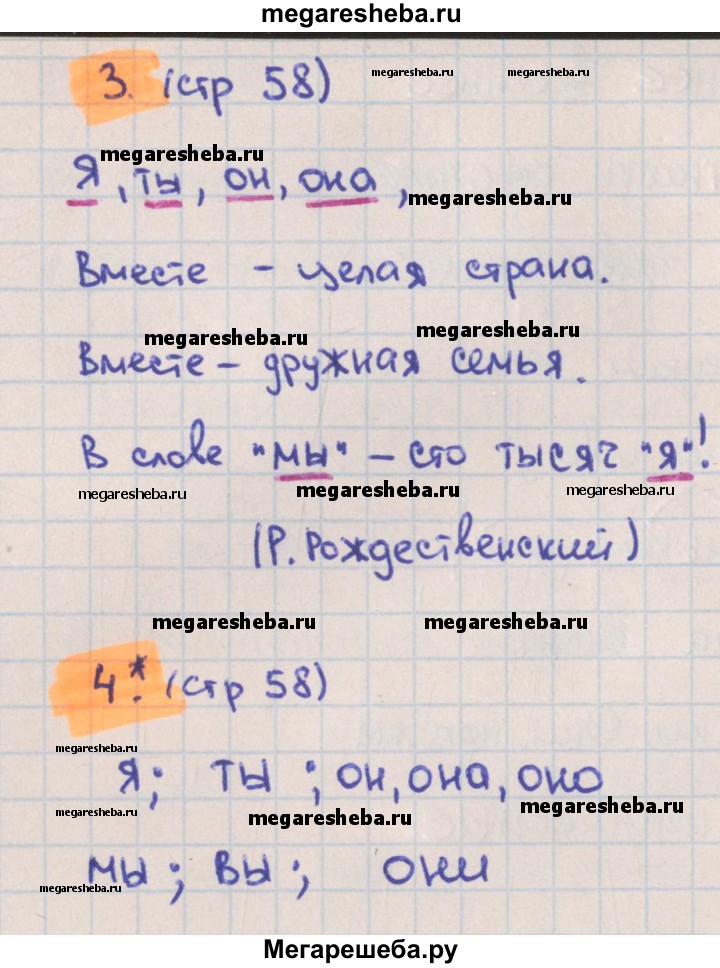 megaresheba.ru
3. (стр 58)
megaresheba.ru megaresheba.ru
megaresheba.ru
Я, ты, он, она,
megaresheba.ru
Вместе - целая страна.
megaresheba.ru megaresheba.ru
Вместе - дружная семья.
В слове "мы" - сто тысяч "я"!
megaresheba.ru megaresheba.ru megaresheba.ru
(Р. Рождественский)
megaresheba.ru megaresheba.ru
4.* (стр 58)
megaresheba.ru
Я; ты; он, она, оно
megaresheba.ru megaresheba.ru megaresheba.ru
мы; вы; они
megaresheba.ru
Мегарешеба.ру